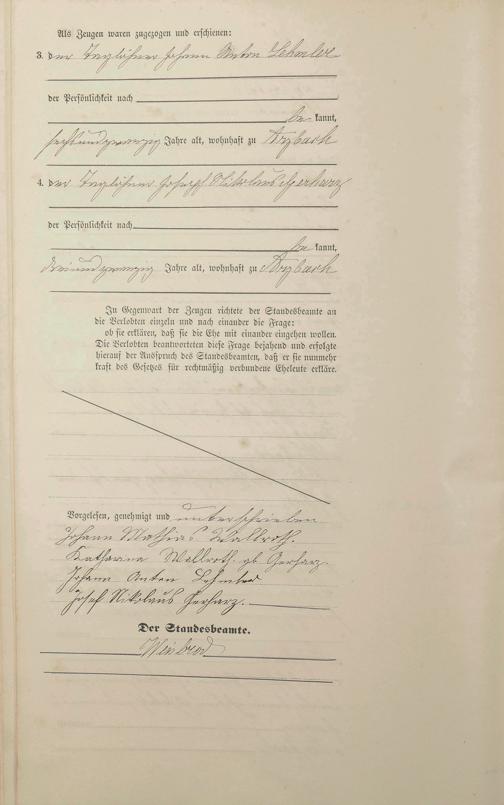 Als Zeugen waren zugezogen und erschienen:
3. der Taglöhner Johann Anton
der Persönlichkeit nach
be kannt,
sechsundzwanzig Jahre alt, wohnhaft zu Arzbach
4. der Taglöhner Joseph Nikolaus Gerharz
der Persönlichkeit nach
be kannt,
dreiundzwanzig Jahre alt, wohnhaft zu Arzbach
In Gegenwart der Zeugen richtete der Standesbeamte an
die Verlobten einzeln und nach einander die Frage:
ob sie erklären, daß sie die Ehe mit einander eingehen wollen.
Die Verlobten beantworteten diese Frage bejahend und erfolgte
hierauf der Ausspruch des Standesbeamten, daß er sie nunmehr
kraft des Gesetzes für rechtmäßig verbundene Eheleute erkläre.
Vorgelesen, genehmigt und unterschrieben
Johann Mathias Wallroth.
Katharina Wallroth gb Gerharz.
Johann Anton
Josef Nikolaus Gerharz.
Der Standesbeamte.